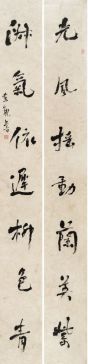 光風搖動蘭英紫
淑氣依遲柳色青